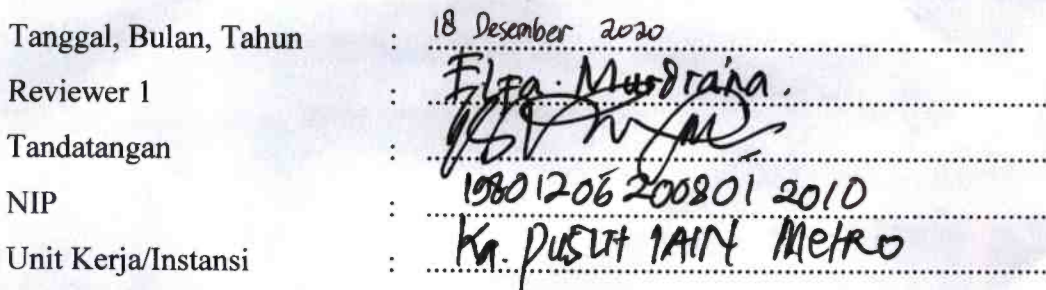 Tanggal, Bulan, Tahun : 18 Desember 2020
Reviewer 1 : Elfa. Murdiana.
Tandatangan :
NIP : 19801206 200801 2010
Unit Kerja/Instansi : Ka. PUSLIT IAIN Metro